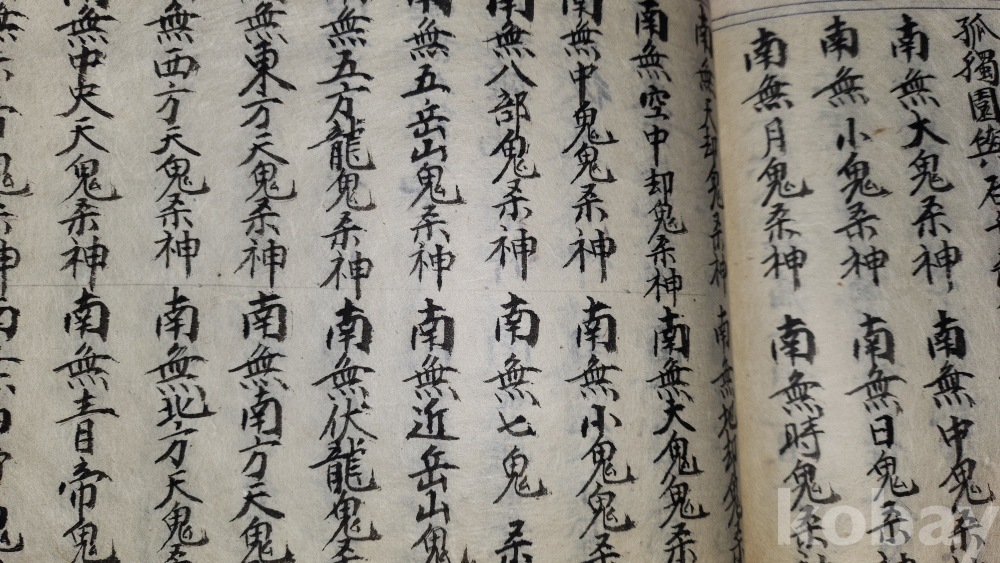 孤獨園與
南無大鬼杀神 南無中鬼杀
南無小鬼杀神 南無日鬼杀神
南無月鬼杀神 南無時鬼杀神
南無天却鬼杀神 南無地却鬼杀
南無空中却鬼杀神 南無大鬼鬼杀
南無中鬼鬼杀神 南無小鬼鬼杀
南無八部鬼杀神 南無七鬼 杀
南無五岳山鬼杀神 南無近岳山鬼
無五方龍鬼杀神 南無伏龍鬼杀
無東方天鬼杀神 南無南方天鬼
無西方天鬼杀神 南無北方天鬼杀
無中央天鬼杀神 南無青帝鬼
kobay